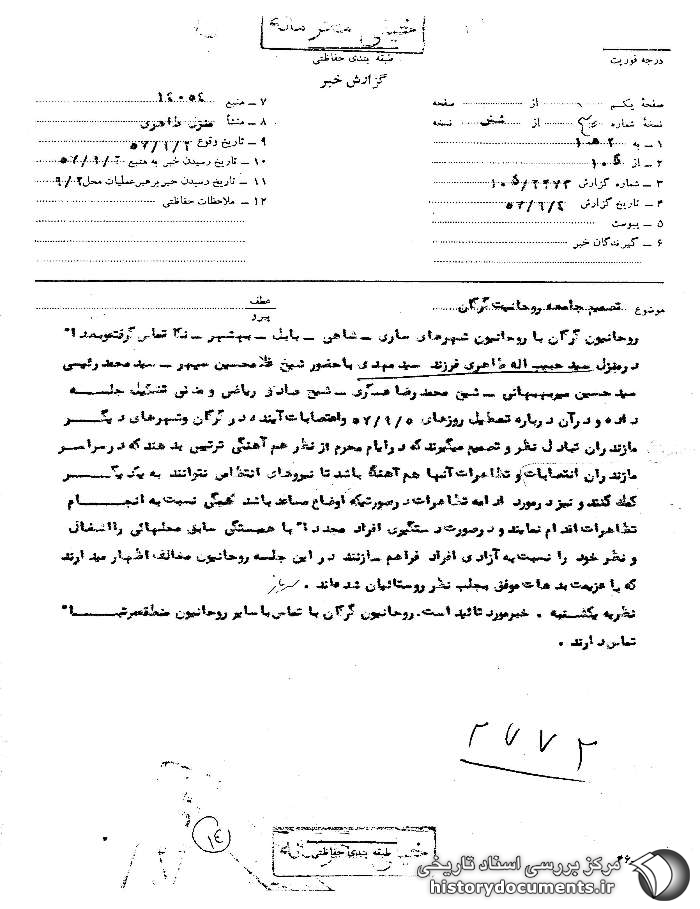 خیلی محرمانه
درجه فوریت
طبقه بندی حفاظتی
گزارش خبر
صفحه یکم از صفحه
نسخه شماره از شش نسخه
۱ ـ به
۲ ـ از ۱۰۵
۳ ـ شماره گزارش
۴ ـ تاریخ گزارش
۵ ـ پیوست
۶ ـ گیرندگان خبر
۷ ـ منبع ۱۴۰۵۴
۸ ـ منشأ منزل طاهری
۹ ـ تاریخ وقوع
۱۰ ـ تاریخ رسیدن خبر به منبع
۱۱ ـ تاریخ رسیدن خبر برهبر عملیات محل
۱۲ ـ ملاحظات حفاظتی
موضوع تصمیم جامعه روحانیت گرگان
عطف
پیرو
روحانیون گرگان با روحانیون شهرهای ساری ـ شاهی ـ بابل ـ بهشهر ـ نکا تماس گرفته
درمنزل سید حبیب اله طاهری فرزند سید مهدی باحضور شیخ غلامحسین ـ سید محمد رئیسی
سید حسین میربهبهانی ـ شیخ محمد رضا عسگری ـ شیخ صادق ریاضی و مدنی تشکیل جلسه
داده و در آن درباره تعطیل روزهای ۵۷/۹/۵ واعتصابات آینده در گرگان وشهرهای دیگر
مازندران تبادل نظر و تصمیم میگیرند که در ایام محرم از نظر هم آهنگی ترتیبی بدهند که در سراسر
مازندران اعتصابات و تظاهرات آنها هم آهنگ باشد تا نیروهای انتظامی نتوانند به یکدیگر
کمک کنند و نیز درمورد ادامه تظاهرات درصورتیکه اوضاع مساعد باشد همگی نسبت به انجام
تظاهرات اقدام نمایند و درصورت دستگیری افراد مجددا" با همبستگی سابق محلهائی را اشغال
و نظر خود را نسبت به آزادی افراد فراهم سازند در این جلسه روحانیون مخالف اظهار میدارند
که با عزیمت بدهات موفق بجلب نظر روستائیان شده‌اند .
نظریه یکشنبه . خبر مورد تائید است. روحانیون گرگان با تماس با سایر روحانیون منطقه مرتبا"
تماس دارند .
۲۷۷۲
۱۴
طبقه بندی حفاظتی
خیلی محرمانه
۳۶
مرکز بررسی اسناد تاریخی
historydocuments.ir